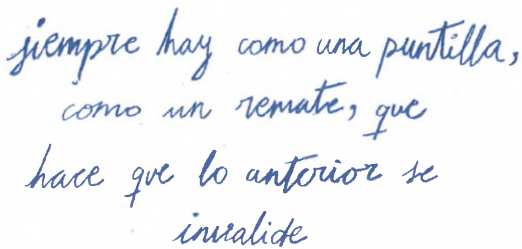 siempre hay como una puntilla,
como un remate, que
hace que lo anterior se
invalide